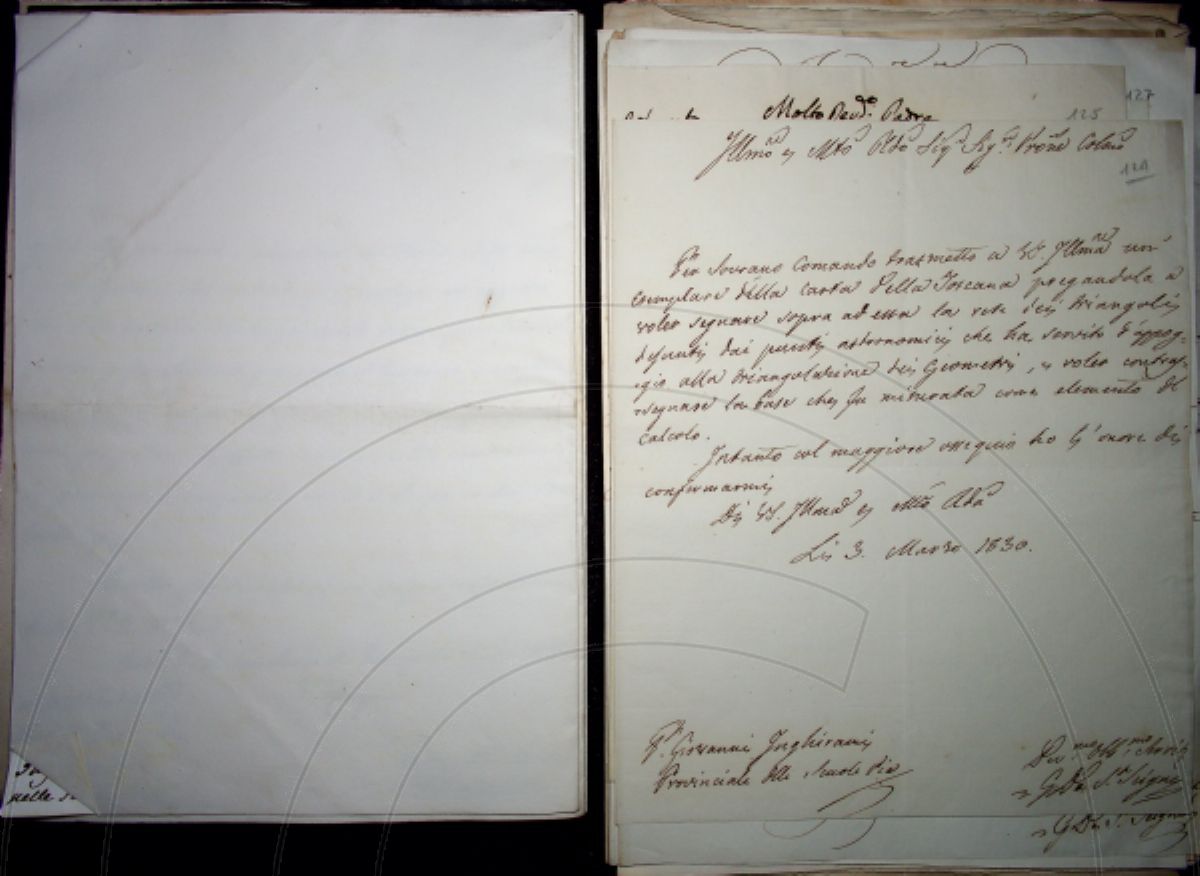 nelle
127
Molto Revdo. Padre
125
Illmo e Mto Rdo Sigre Sigre Prone Colmo
124
Per Sovrano Comando trasmetto a VS. Illma un'
esemplare della carta della Toscana pregandola a
voler segnare sopra ad essa la rete dei triangoli
dai punti astronomici che ha servito d'appog-
gio alla triangolazione dei Geometri, e voler contras-
segnare la base che fu misurata come elemento di
calcolo.
Intanto col maggiore ossequio ho l'onore di
confermarmi
Di VS. Illma e Mto Rda
Li 3. Marzo 1830.
P. Giovanni Inghirami
Provinciale delle Scuole Pie
Devmo Obbmo